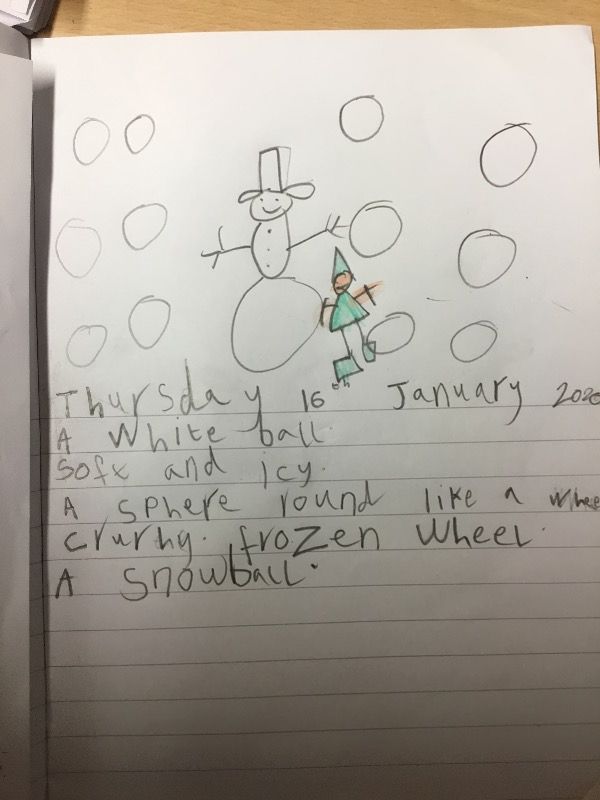 Thursday 16th January 2020
A White ball.
Sofx and icy.
A Sphere round like a Whee
Crurhy. frozen Wheel.
A Snowball.